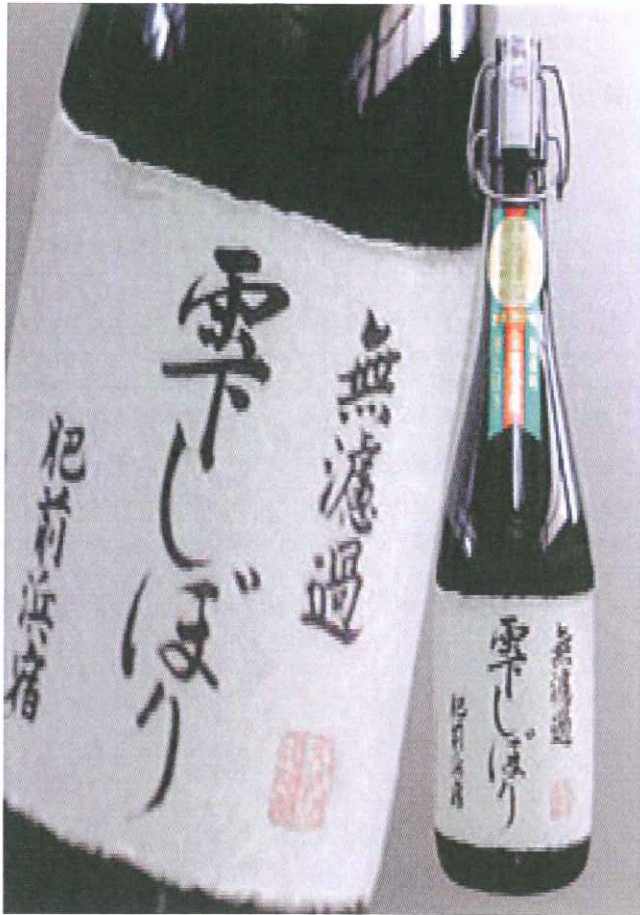 無濾過
雫しぼり
肥前浜宿
無濾過
雫しぼり
肥前浜宿